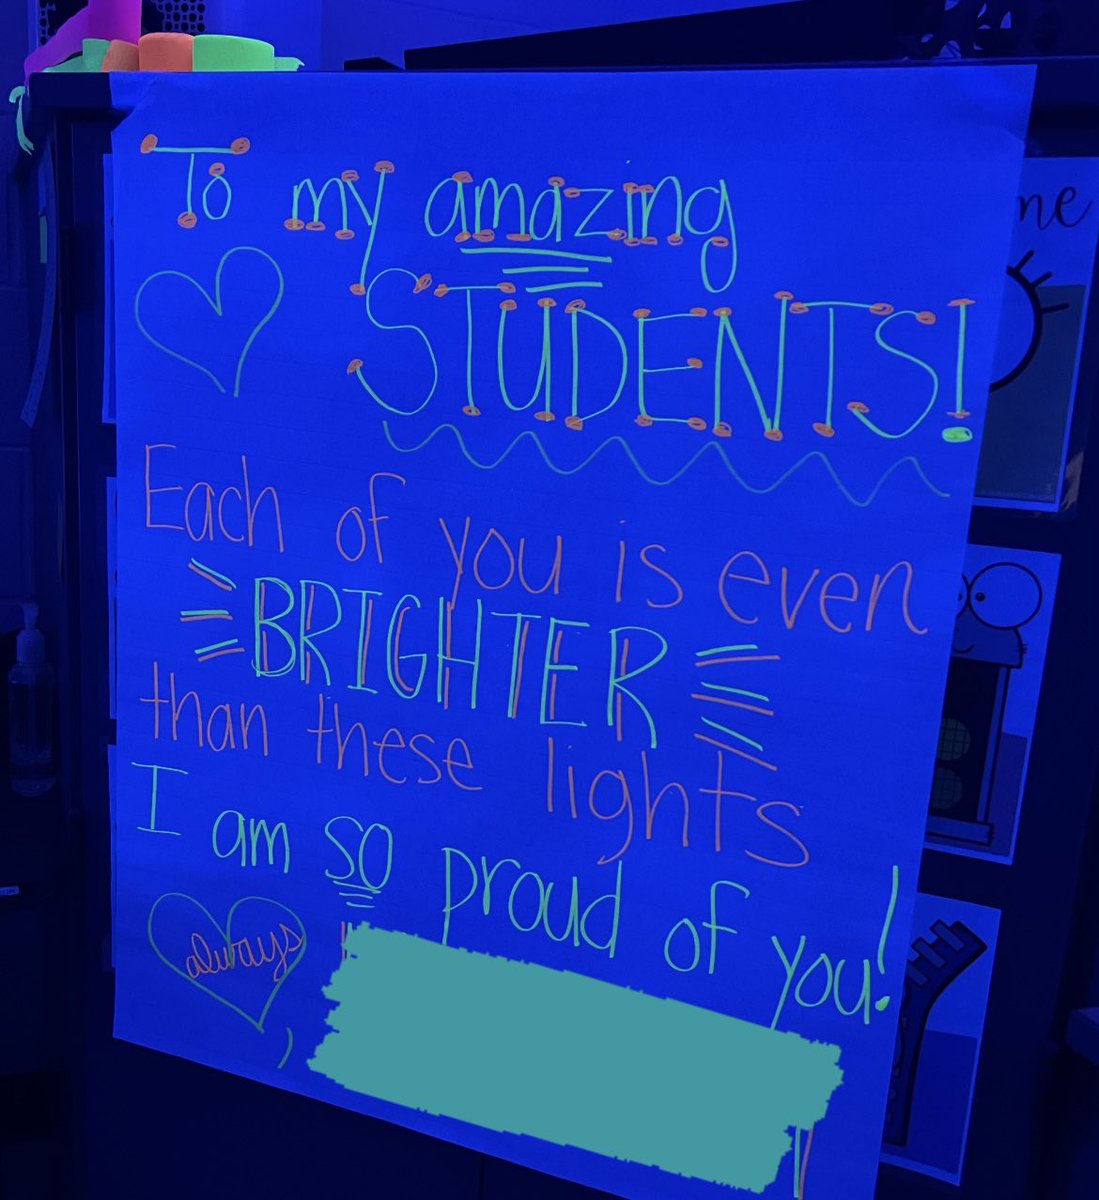 To my amazing
STUDENTS!
Each of you is even
BRIGHTER
than these lights
I am so proud of you!
always,
me